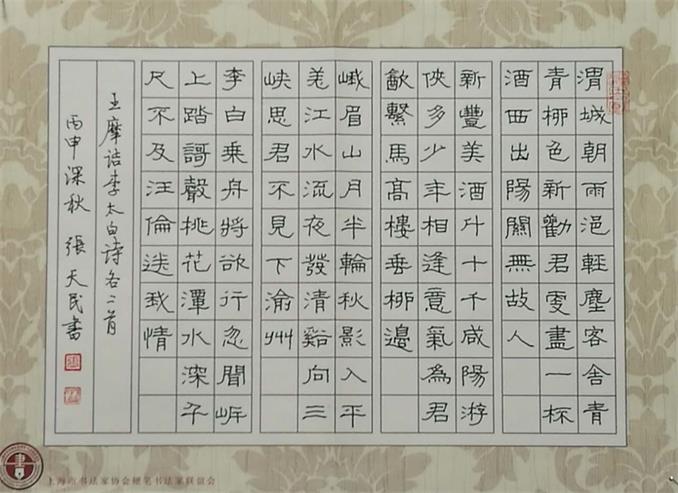 渭城朝雨浥輕塵客舍青
青柳色新勸君更盡一杯
酒西出陽關無故人
新豐美酒斗十千咸陽游
俠多少年相逢意氣為君
飲繫馬髙樓垂柳邊
峨眉山月半輪秋影入平
羌江水流夜發清谿向三
峽思君不見下渝州
李白乗舟將欲行忽聞岸
上踏謌聲桃花潭水深千
尺不及汪倫送我情
王摩诘李太白诗各二首
丙申深秋 張天民書
上海市书法家协会硬笔书法家联谊会